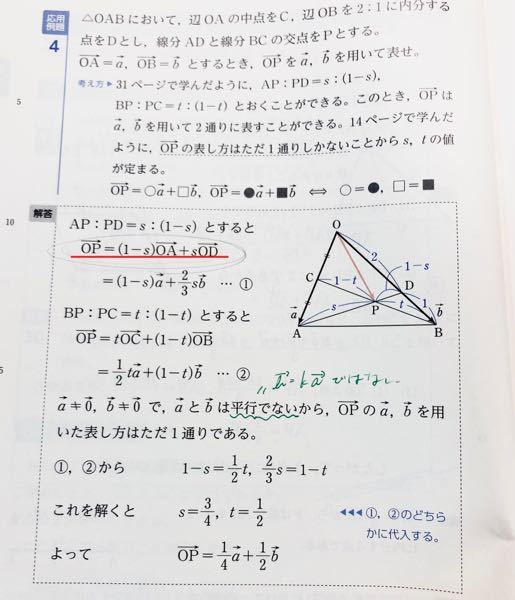 応用
例題
4
△OABにおいて，辺OAの中点をC，辺OBを2：1に内分する
点をDとし，線分ADと線分BCの交点をPとする。
$\overrightarrow{OA}=\vec{a}$，$\overrightarrow{OB}=\vec{b}$とするとき，$\overrightarrow{OP}$を$\vec{a}$，$\vec{b}$を用いて表せ。
考え方▶31ページで学んだように，AP：PD=s：(1−s)，
5
BP：PC=t：(1−t) とおくことができる。このとき，$\overrightarrow{OP}$は
$\vec{a}$，$\vec{b}$を用いて2通りに表すことができる。14ページで学んだ
ように，$\overrightarrow{OP}$の表し方はただ1通りしかないことからs，tの値
が定まる。
$\overrightarrow{OP}=○\vec{a}+□\vec{b}$，$\overrightarrow{OP}=●\vec{a}+■\vec{b}$ ⟺ ○=●，□=■
10
解答
AP：PD=s：(1−s) とすると
$\overrightarrow{OP}=(1-s)\overrightarrow{OA}+s\overrightarrow{OD}$
$=(1-s)\vec{a}+\frac{2}{3}s\vec{b}$ … ①
BP：PC=t：(1−t) とすると
$\overrightarrow{OP}=t\overrightarrow{OC}+(1-t)\overrightarrow{OB}$
5
$=\frac{1}{2}t\vec{a}+(1-t)\vec{b}$ … ②
O
2
C
1−t
1−s
D
$\vec{a}$
s
P
t
1
$\vec{b}$
A
B
$\vec{b}=k\vec{a}$ ではない
$\vec{a}≠\vec{0}$，$\vec{b}≠\vec{0}$ で，$\vec{a}$と$\vec{b}$は平行でないから，$\overrightarrow{OP}$の$\vec{a}$，$\vec{b}$を用
いた表し方はただ1通りである。
①，②から $1-s=\frac{1}{2}t$，$\frac{2}{3}s=1-t$
これを解くと $s=\frac{3}{4}$，$t=\frac{1}{2}$
◀◀◀①，②のどちら
かに代入する。
よって $\overrightarrow{OP}=\frac{1}{4}\vec{a}+\frac{1}{2}\vec{b}$